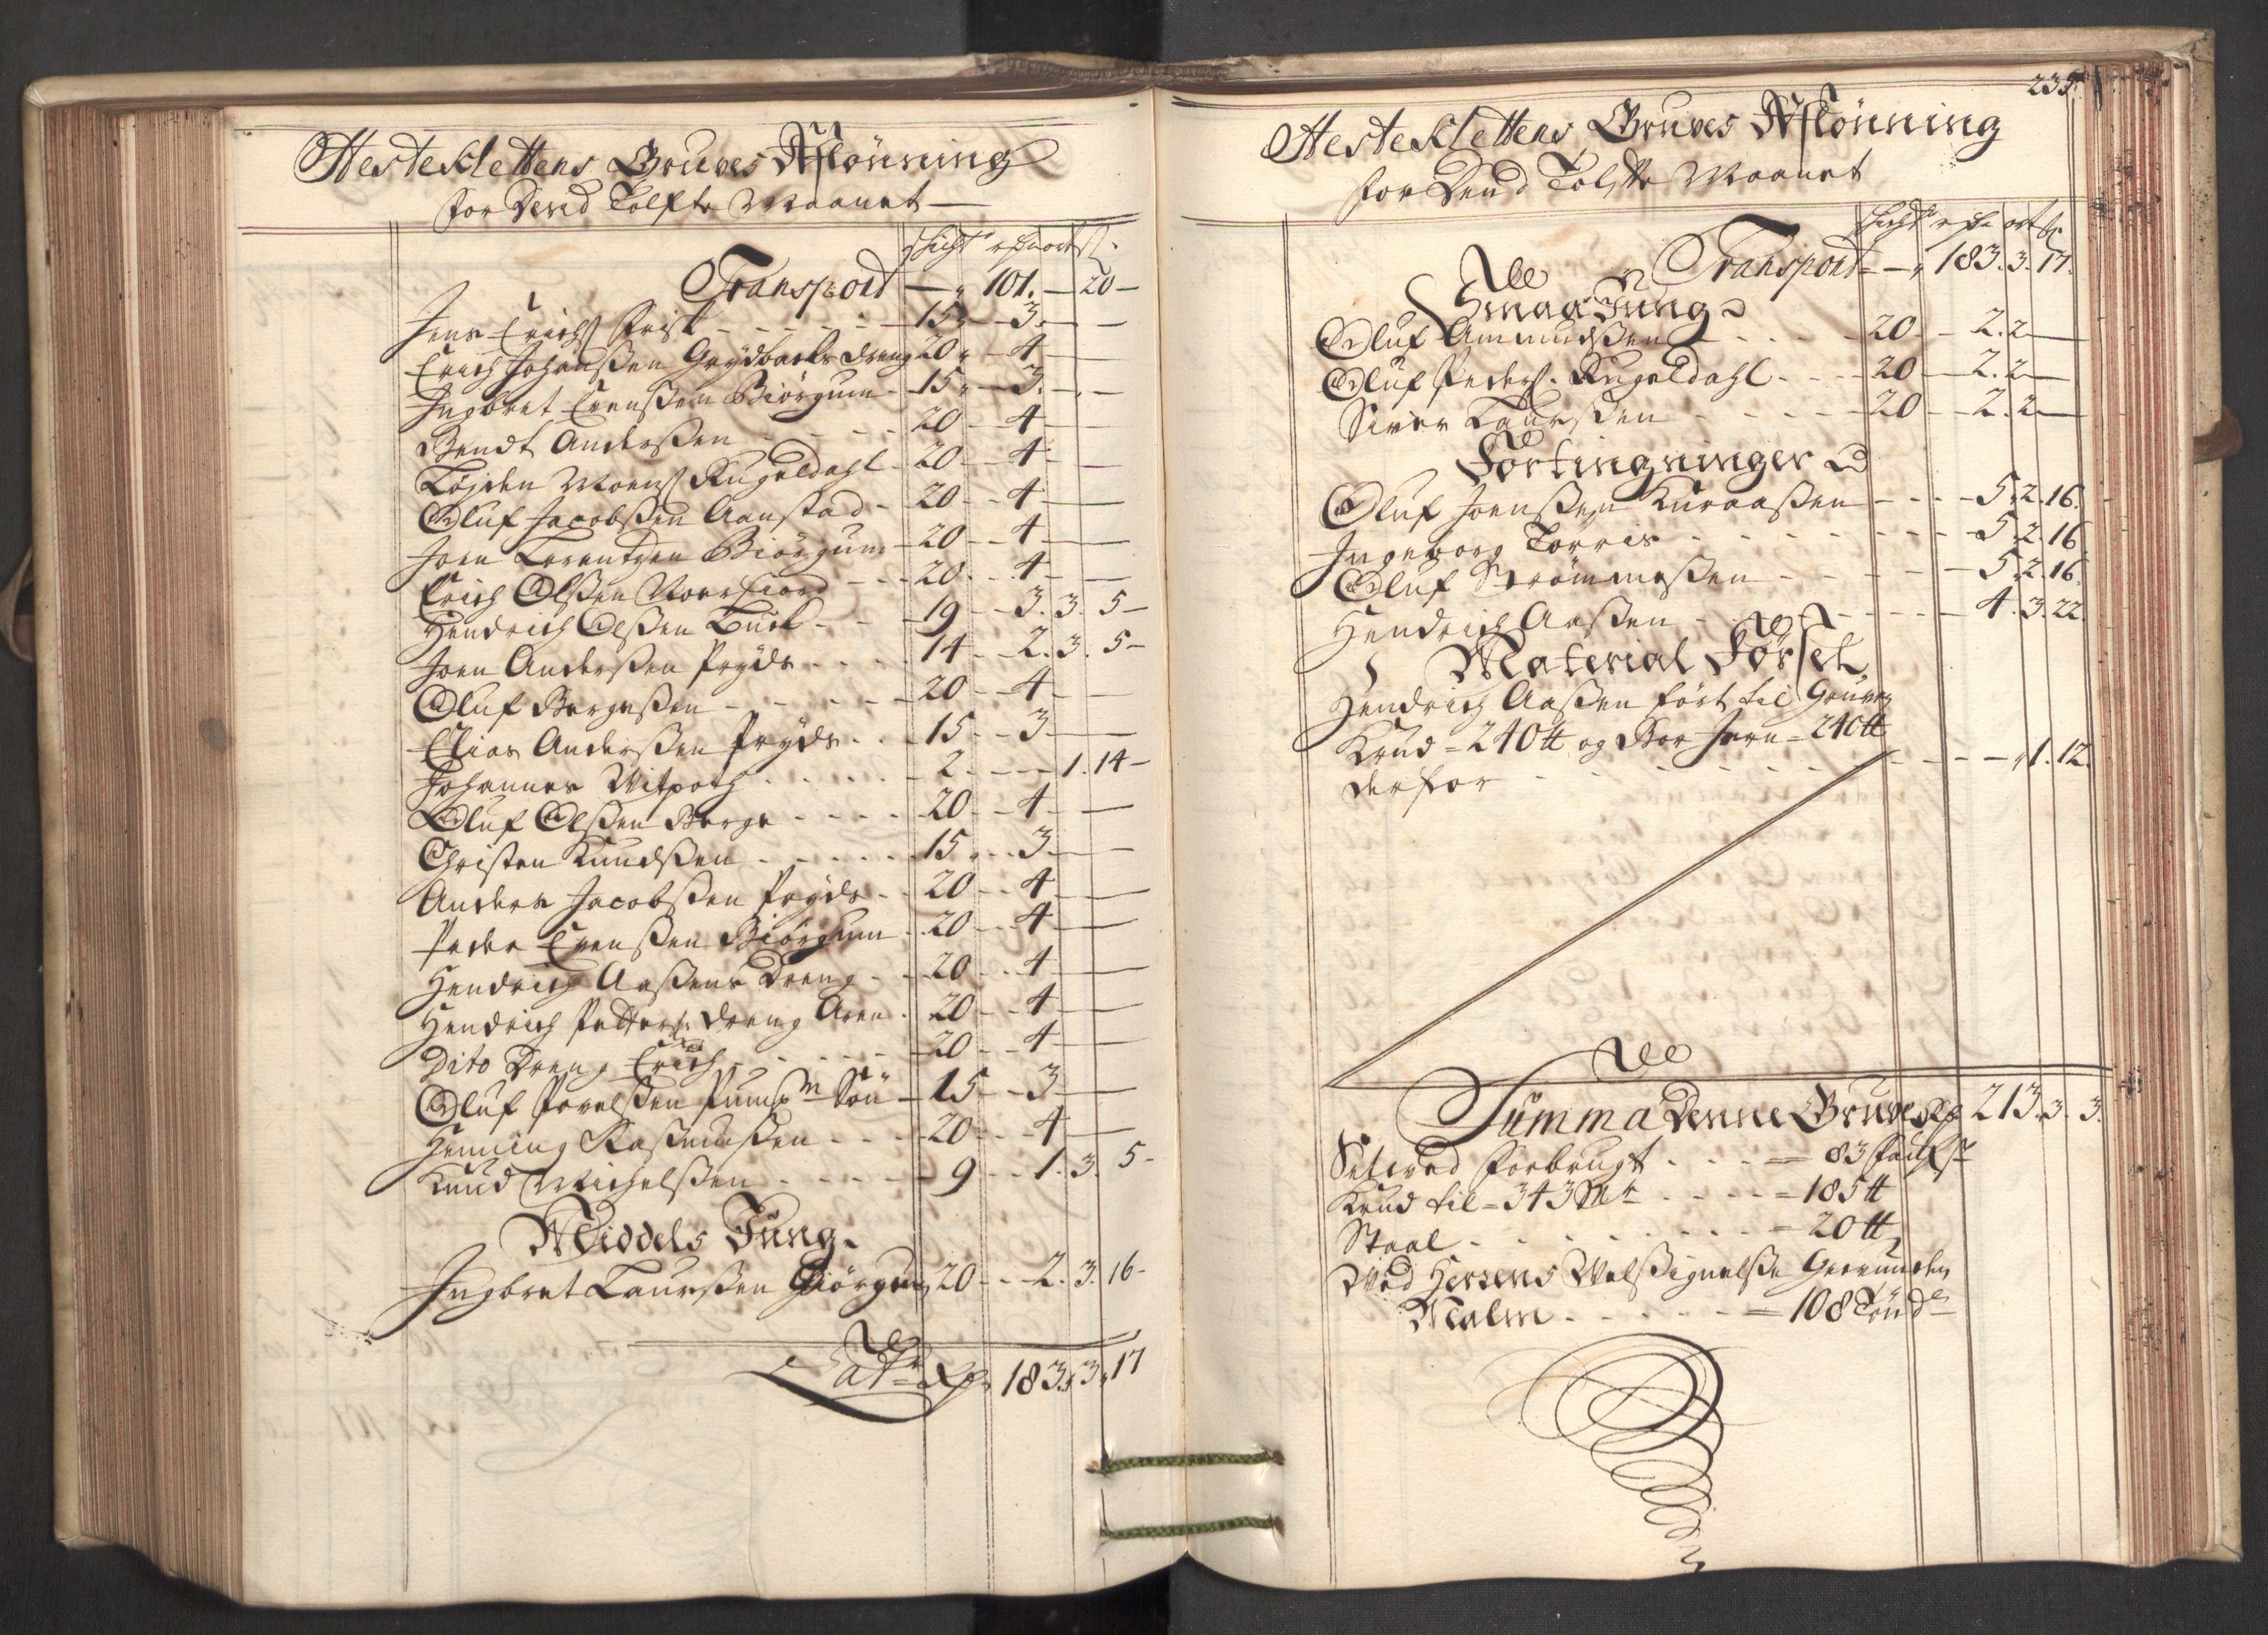 Hesteklettens Gruves Aflönning
for Dend Tolfte Maanet
schicht rdr ort s
Transport — " 101. — 20 —
Jens Erichs Frisk - - - 15 " — 3. — —
Erich Johanßen Grydbacks dreng 20 " — 4 — —
Ingbret Evenßen Biörgum - 15 " — 3. — —
Bendt Anderßen - - - - 20 — 4 — —
Moens Rugeldahl - 20 — 4 — —
Oluf Jacobßen Aanstad - 20 - - 4 — —
Joen Lorentzen Biörgum - 20 - - 4 — —
Erich Olßen - - 20 - - 4 — —
Hendrich Olßen - - 19 - - 3. 3. 5 —
Joen Anderßen Pryds - - - 14 — 2. 3. 5 —
Oluf Bergeßen - - - - - 20 - - 4 — —
Elias Anderßen Pryds - - - 15 - - 3 — —
Johannes Witpoth - - - - 2 - - - 1. 14 —
Oluf Olßen Berge - - - - 20 - - 4 — —
Christen Knudßen - - - - - 15 " - - 3 — —
Anders Jacobßen Pryds - - 20 - - 4 — —
Peder Evenßen Biörgum - 20 - - 4 — —
Hendrich Aaßens Dreng - - 20 - - 4 — —
Hendrich Petters: dreng Aren - 20 - - 4 — —
Dito Dreng Erich - - - - 20 - - 4 — —
Oluf Povelßen Pumpm Sön - 15 - - 3 — —
Henning Raßmußen - - - 20 - - 4 — —
Knud Michelßen - - - - 9 - - 1. 3. 5 -
Middels Jung.
Ingbret Laurßen Biörgum 20 - - 2. 3. 16 -
Lats Rd 183. 3. 17
235.
Hesteklettens Gruves Aflönning
for Dend Tolfte Maanet
schicht rdr ort s
Transport - — " 183. 3. 17.
Smaa Jung
Oluf Ammundßen - - - 20 - - 2. 2 —
Oluf Peders. Rugeldahl - - - 20 — 2. 2 —
Siver Laurßen - - - - - 20 - - 2. 2 —
Fortingninger
Oluf Joenßen Kuraaßen - - - 5. 2. 16.
Ingeborg Torris - - - - - - - 5. 2. 16
Oluf Strömmeßen - - - - - 5. 2. 16.
Hendrich Aaßen - - - - - - 4. 3. 22.
Material Förſel
Hendrich Aaßen fört til Gruven
Krud - 240 ℔ og Bor Jern - 240 ℔
derfor - - - - - - - - - " 1. 12.
Summa denne Gruve Rd 213. 3. 3.
Setved forbrugt - - - = 83 faufr
Krud til - 343 Mr - - - - = 185 ℔
Staal - - - - - - - - - = 20 ℔
Ved Herrens Velßignelße Gevunden
Malm - - - - - = 108 Tönd